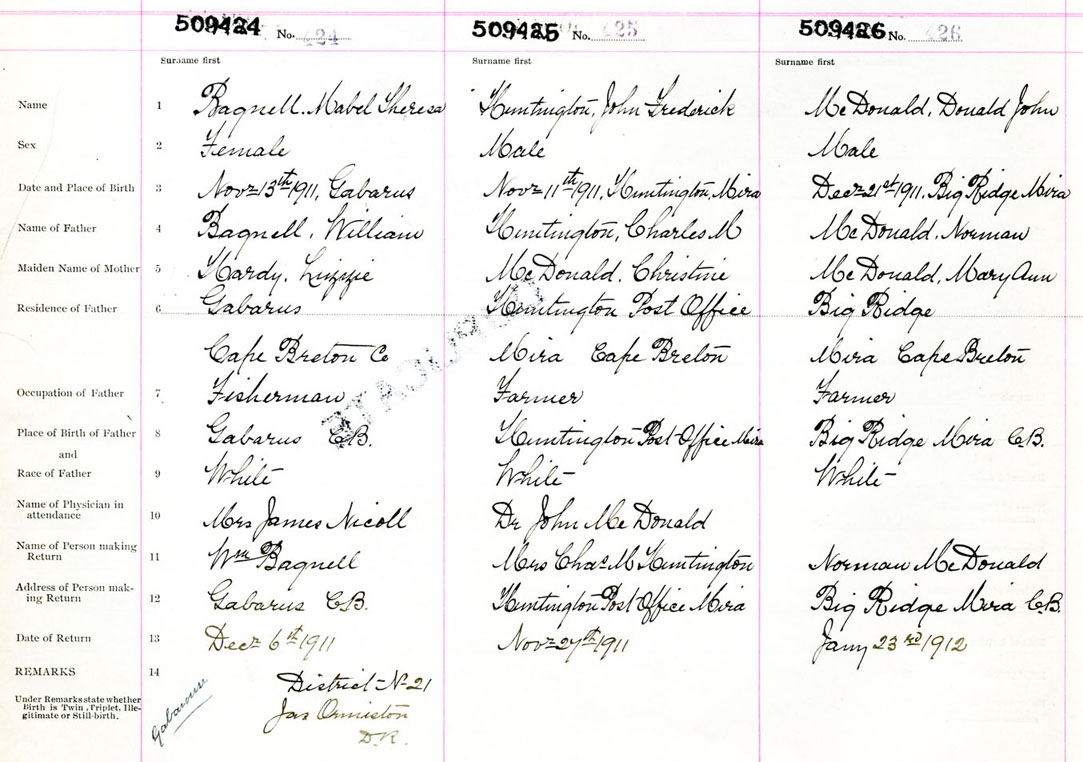 509424 No. 424 509425 No. 425 509426 No. 426
Surname first Surname first Surname first
Name 1 Bagnell. Mabel Theresa Huntington, John Frederick McDonald, Donald John
Sex 2 Female Male Male
Date and Place of Birth 3 Novr 13th 1911, Gabarus Novr 11th 1911, Huntington, Mira Decr 21st 1911, Big Ridge Mira
Name of Father 4 Bagnell, William Huntington, Charles M McDonald, Norman
Maiden Name of Mother 5 Hardy, Lizzie McDonald, Christine McDonald, Mary Ann
Residence of Father 6 Gabarus Huntington Post Office Big Ridge
Cape Breton Co Mira Cape Breton Mira Cape Breton
Occupation of Father 7 Fisherman Farmer Farmer
Place of Birth of Father 8 Gabarus C.B. Huntington Post Office Mira Big Ridge Mira C.B.
and
Race of Father 9 White White White
Name of Physician in
attendance 10 Mrs James Nicoll Dr John McDonald
Name of Person making
Return 11 Wm Bagnell Mrs Chas M Huntington Norman McDonald
Address of Person mak-
ing Return 12 Gabarus C.B. Huntington Post Office Mira Big Ridge Mira C.B.
Date of Return 13 Decr 6th 1911 Novr 27th 1911 Jany 23rd 1912
REMARKS 14 District No 21
Under Remarks state whether
Birth is Twin, Triplet, Ille-
gitimate or Still-birth.
Jas Ormiston
D.R.
Gabarouse
DUPLICATE